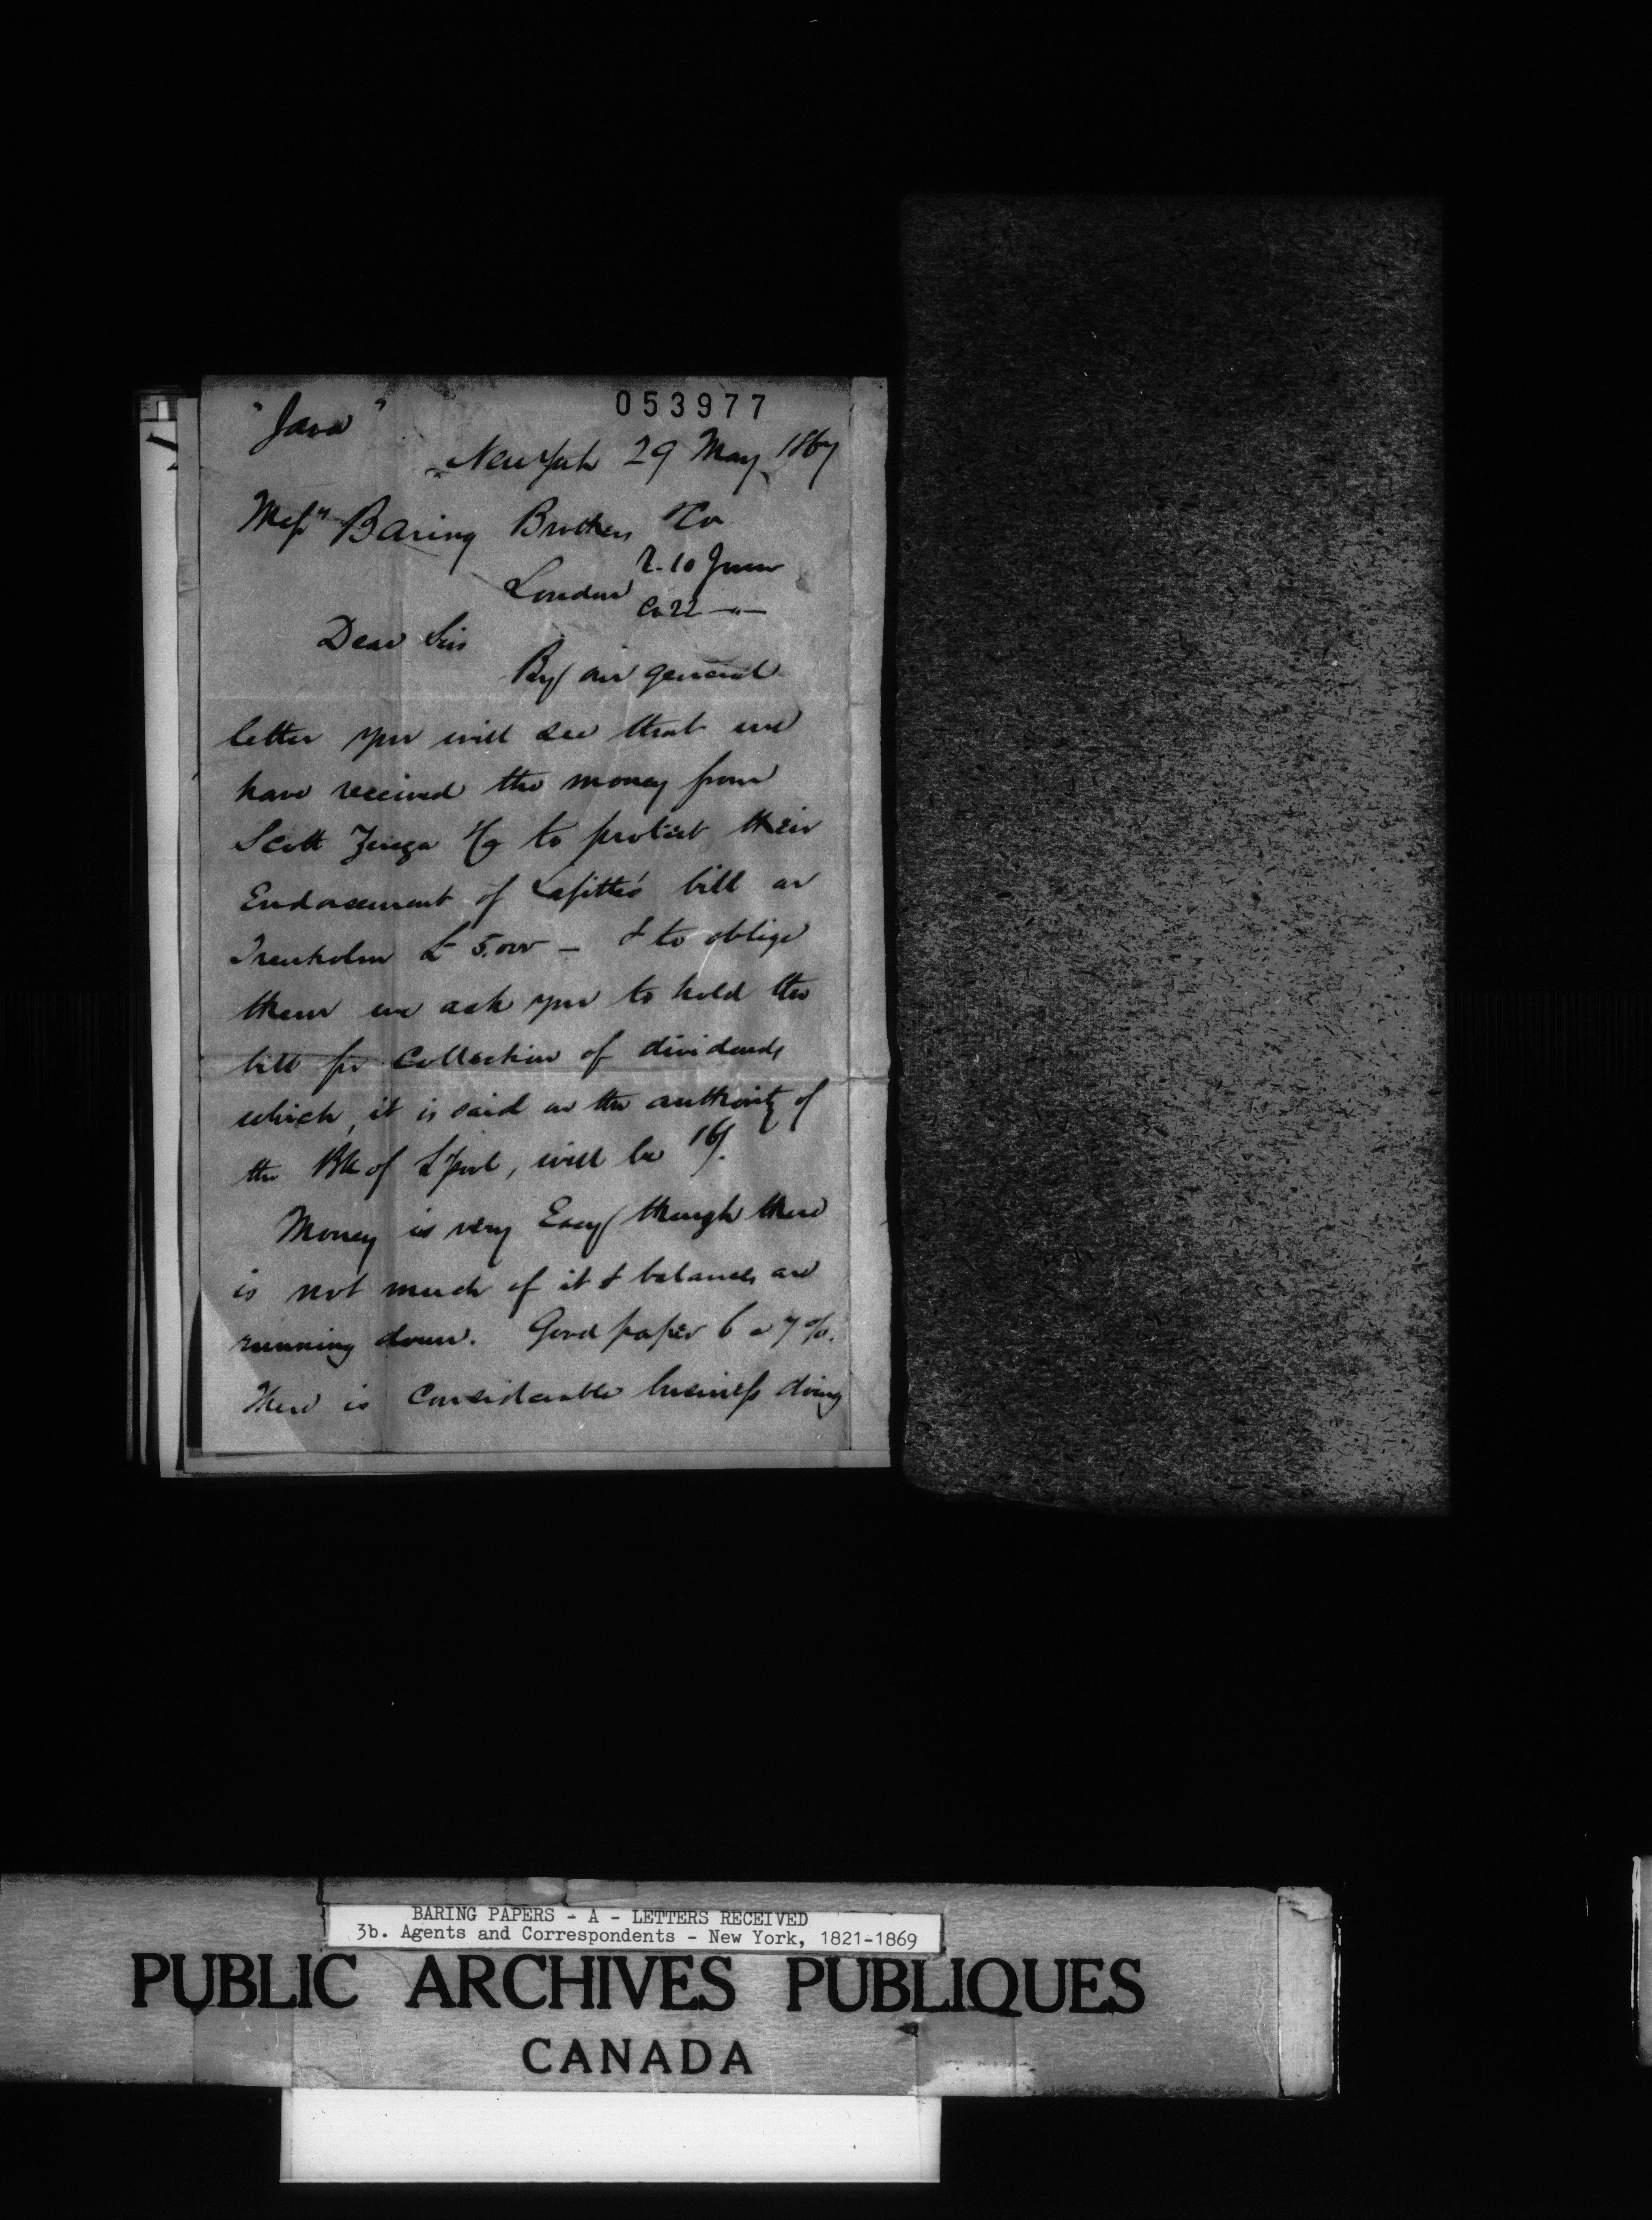 053977
"Java"
New York 29 May 1867
Messrs Baring Brothers & Co
R. 10 June
London
22 — " —
Dear Sirs
By our general
letter you will see that we
have received the money from
Scott & Co to protect their
Endorsement of Lafitte's bill on
Trenholm £5.000 — & to oblige
them we ask you to hold the
bill for collection of dividends
which, it is said on the authority of
the Bk of L'pool, will be
Money is very Easy though there
is not much of it & balances are
running down. Good paper 6 a 7 %.
There is considerable business doing
BARING PAPERS - A - LETTERS RECEIVED
3b. Agents and Correspondents - New York, 1821-1869
PUBLIC ARCHIVES PUBLIQUES
CANADA